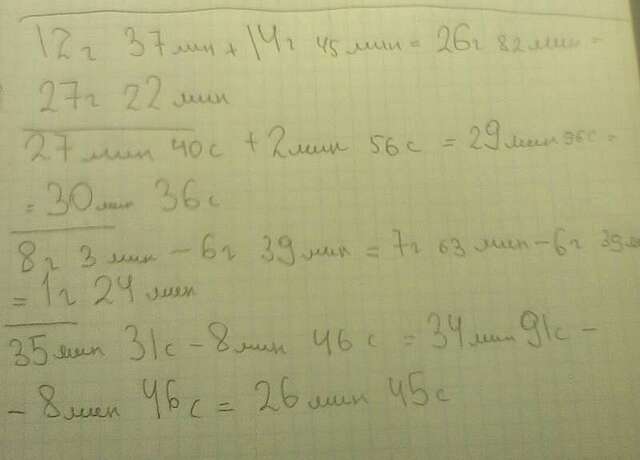 12г 37мин + 14г 45мин = 26г 82мин =
27г 22мин
27мин 40с + 2мин 56с = 29мин 96с =
= 30мин 36с
8г 3мин - 6г 39мин = 7г 63мин - 6г 39м
= 1г 24мин
35мин 31с - 8мин 46с = 34мин 91с -
- 8мин 46с = 26мин 45с